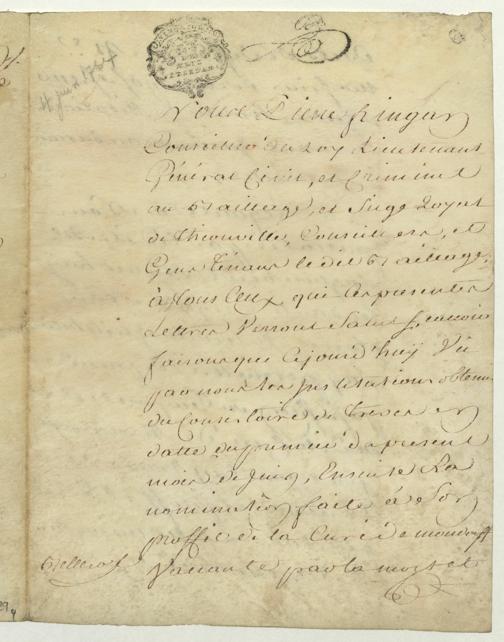 Pierre
Conseiller du Roy Lieutenant
Général Civil, et Criminel
au Bailliage, et Siege Royal
de Thionville, Conseillers, et
Gens tenans le dit Bailliage,
à tous ceux qui ces presentes
Lettres Verront Salut Scavoir
faisons que cejourd'huy Vû
par nous les Institutions obtenu
du Consistoire de Treves en
datte du premier du present
mois de Juin, Ensuite La
nomination faite à
proffit de la Cure de mondorff
Vacante par la mort de